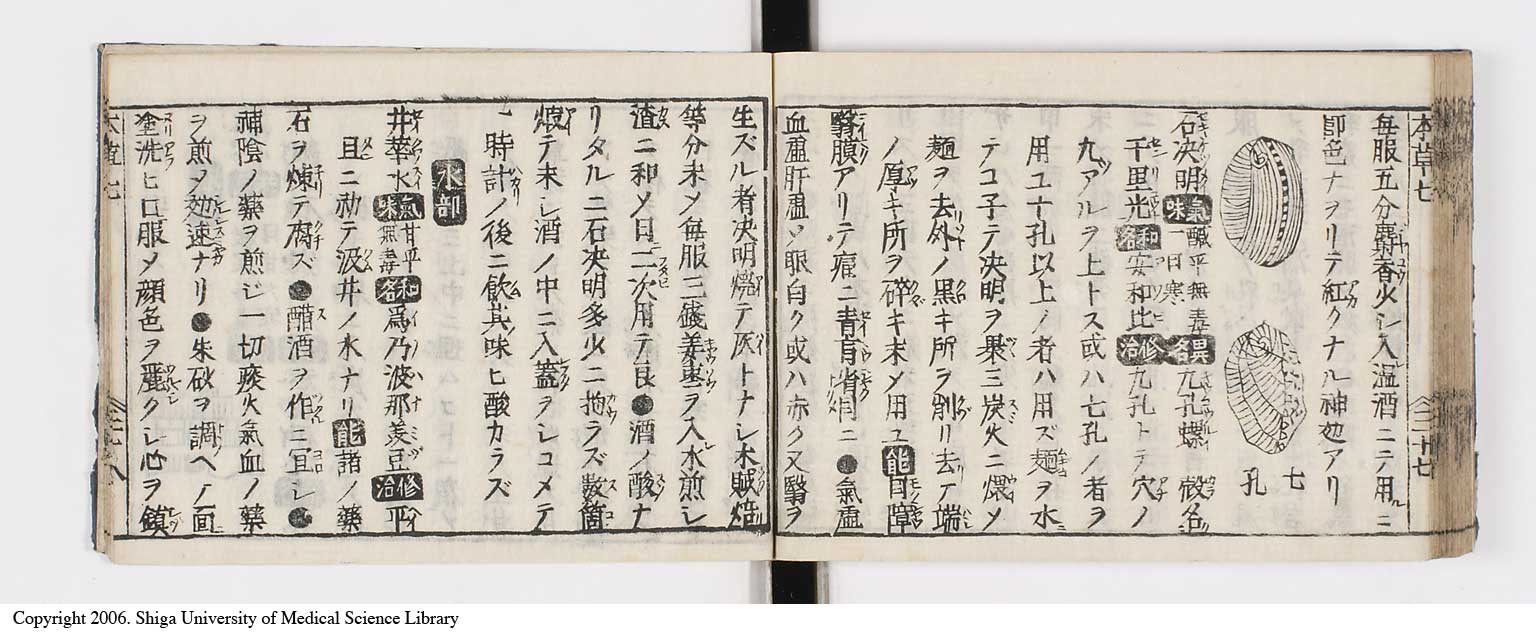 本草七 二十七
毎服五分麝香少シ入温酒ニテ用ルニ
即色ナヲリテ紅クナル神効アリ
七孔
石决明 氣味 醎平無毒 一曰寒 異名 九孔螺 殻名
千里光 和名 安和比 修治 九孔トテ穴ノ
九アルヲ上トス或ハ七孔ノ者ヲ
用ユ十孔以上ノ者ハ用ズ麺ヲ水
テコ子テ决明ヲ裹三炭火ニ煨メ
麺ヲ去外ノ黒キ所ヲ削リ去テ端
ノ厚キ所ヲ碎キ末メ用ユ 能 目障
翳膜アリテ痛ニ青盲 ニ●氣虚
血虚肝虚ソ眼白ク或ハ赤ク又翳ヲ
生ズル者决明燒テ灰トナシ木賊焙
等分末メ毎服三錢姜棗ヲ入水煎シ
渣ニ和メ日二次用テ良●酒ノ酸ナ
リタルニ石决明多少ニ拘ラズ數箇
煅テ末シ酒ノ中ニ入蓋ヲシコメテ
一時計ノ後ニ飲其味ヒ酸カラズ
水部
井華水 氣味 甘平無毒 和名 爲乃波那美豆 修治 平
旦ニ初テ汲井ノ水ナリ 能 諸ノ藥
石ヲ煉テ腐ズ●醋酒ヲ作ニ宜シ●
補陰ノ藥ヲ煎ジ一切痰火氣血ノ藥
ヲ煎ヲ効速ナリ●朱砂ヲ調ヘノ面
塗洗ヒ口服メ顔色ヲ麗クシ心ヲ鎮
本草七 二十八
Copyright 2006. Shiga University of Medical Science Library